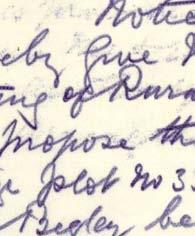 Notic
eby give N
ing of Rura
propose th
plot no 33
Begley be